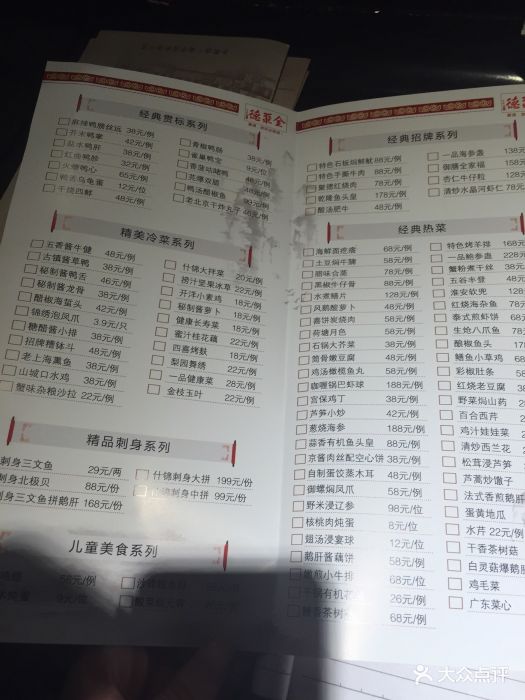 全聚德
经典贯标系列
麻辣鸭膀丝远 38元/例
芥末鸭掌 42元/例
盐水鸭肝 38元/例
红曲鸭胗 32元/例
火燎鸭心 65元/例
鸭汤乌龟蛋 12元/位
干烧四鲜 48元/例
青椒鸭肠 38元/例
雀巢鸭宝
香菠咕咾鸭
芫爆双脆
鸭汤醋椒鱼
老北京干炸丸子 46元/例
精美冷菜系列
五香酱牛健 48元/例
古镇酱草鸭 38元/例
秘制酱鸭舌 46元/例
秘制酱龙骨 38元/例
醋椒海蜇头 42元/例
锦绣泡凤爪 3.9元/只
糖醋酱小排 38元/例
招牌糟钵斗 48元/例
老上海熏鱼 38元/例
山城口水鸡 38元/例
蟹味杂粮沙拉 22元/例
什锦大拌菜 20元/例
捞汁坚果冰草 22元/例
开洋小素鸡 18元/例
秘制萝卜 18元/例
健康长寿菜 18元/例
蜜汁桂花藕 22元/例
四喜烤麸 18元/例
梨园舞绣 22元/例
一品健康菜 28元/例
金枝玉叶 22元/例
精品刺身系列
刺身三文鱼 29元/两
刺身北极贝 88元/份
刺身三文鱼拼鹅肝 168元/份
什锦刺身大拼 199元/份
刺身中拼 99元/份
儿童美食系列
58元/例
经典招牌系列
特色石板焗鲜鱿 88元/例
特色手撕牛肉 88元/例
聚德红烧肉 78元/例
乾隆鱼头皇 178元/例
酸汤肥牛 48元/例
一品海参盏 138元
御膳全家福 158元
杏仁牛仔粒 128元
清炒水晶河虾仁 78元
经典热菜
海鲜面疙瘩 68元/例
土豆焖牛腱 58元/例
腊味合蒸 78元/例
黑椒牛仔骨 88元/例
水煮鳝片 128元/例
风鹅酸萝卜 48元/例
喜饼炭烧肉 58元/例
荷塘月色 58元/例
石锅大芥菜 38元/例
筒骨嫩豆腐 48元/例
鸡汤橄榄鱼丸 58元/例
咖喱锅巴虾球 188元/例
宫保鸡丁 38元/例
芦笋小炒 42元/例
葱烧海参 188元/例
蒜香有机鱼头皇 88元/例
京酱肉丝配空心饼 38元/例
自制蛋饺蒸木耳 48元/例
御螺焖凤爪 58元/例
野米浸辽参 98元/位
核桃肉炖蛋 8元/位
翅汤浸宴球 12元/位
鹅肝酱藕饼 58元/例
嫩煎小牛排 68元/位
干锅有机花 26元/例
茶树 68元/例
特色烤羊排 168元
一品鲍参盏 228元
蟹粉煮干丝 38元
五谷丰登 48元
淮安软兜 128元
红烧海杂鱼 78元
泰式煎虾饼
生炝八爪鱼 78元
酿椒鱼头
鳝鱼小草鸡 68元
彩椒肚条 58元
红烧老豆腐 38元
野菜焗山药
百合西芹
鸡汁娃娃菜
清炒西兰花
松茸浸芦笋
芦蒿炒馓子
法式香煎鹅肝
蛋黄地瓜
水芹 22元/例
干香茶树菇
白灵菇爆鹅肝
鸡毛菜
广东菜心
大众点评